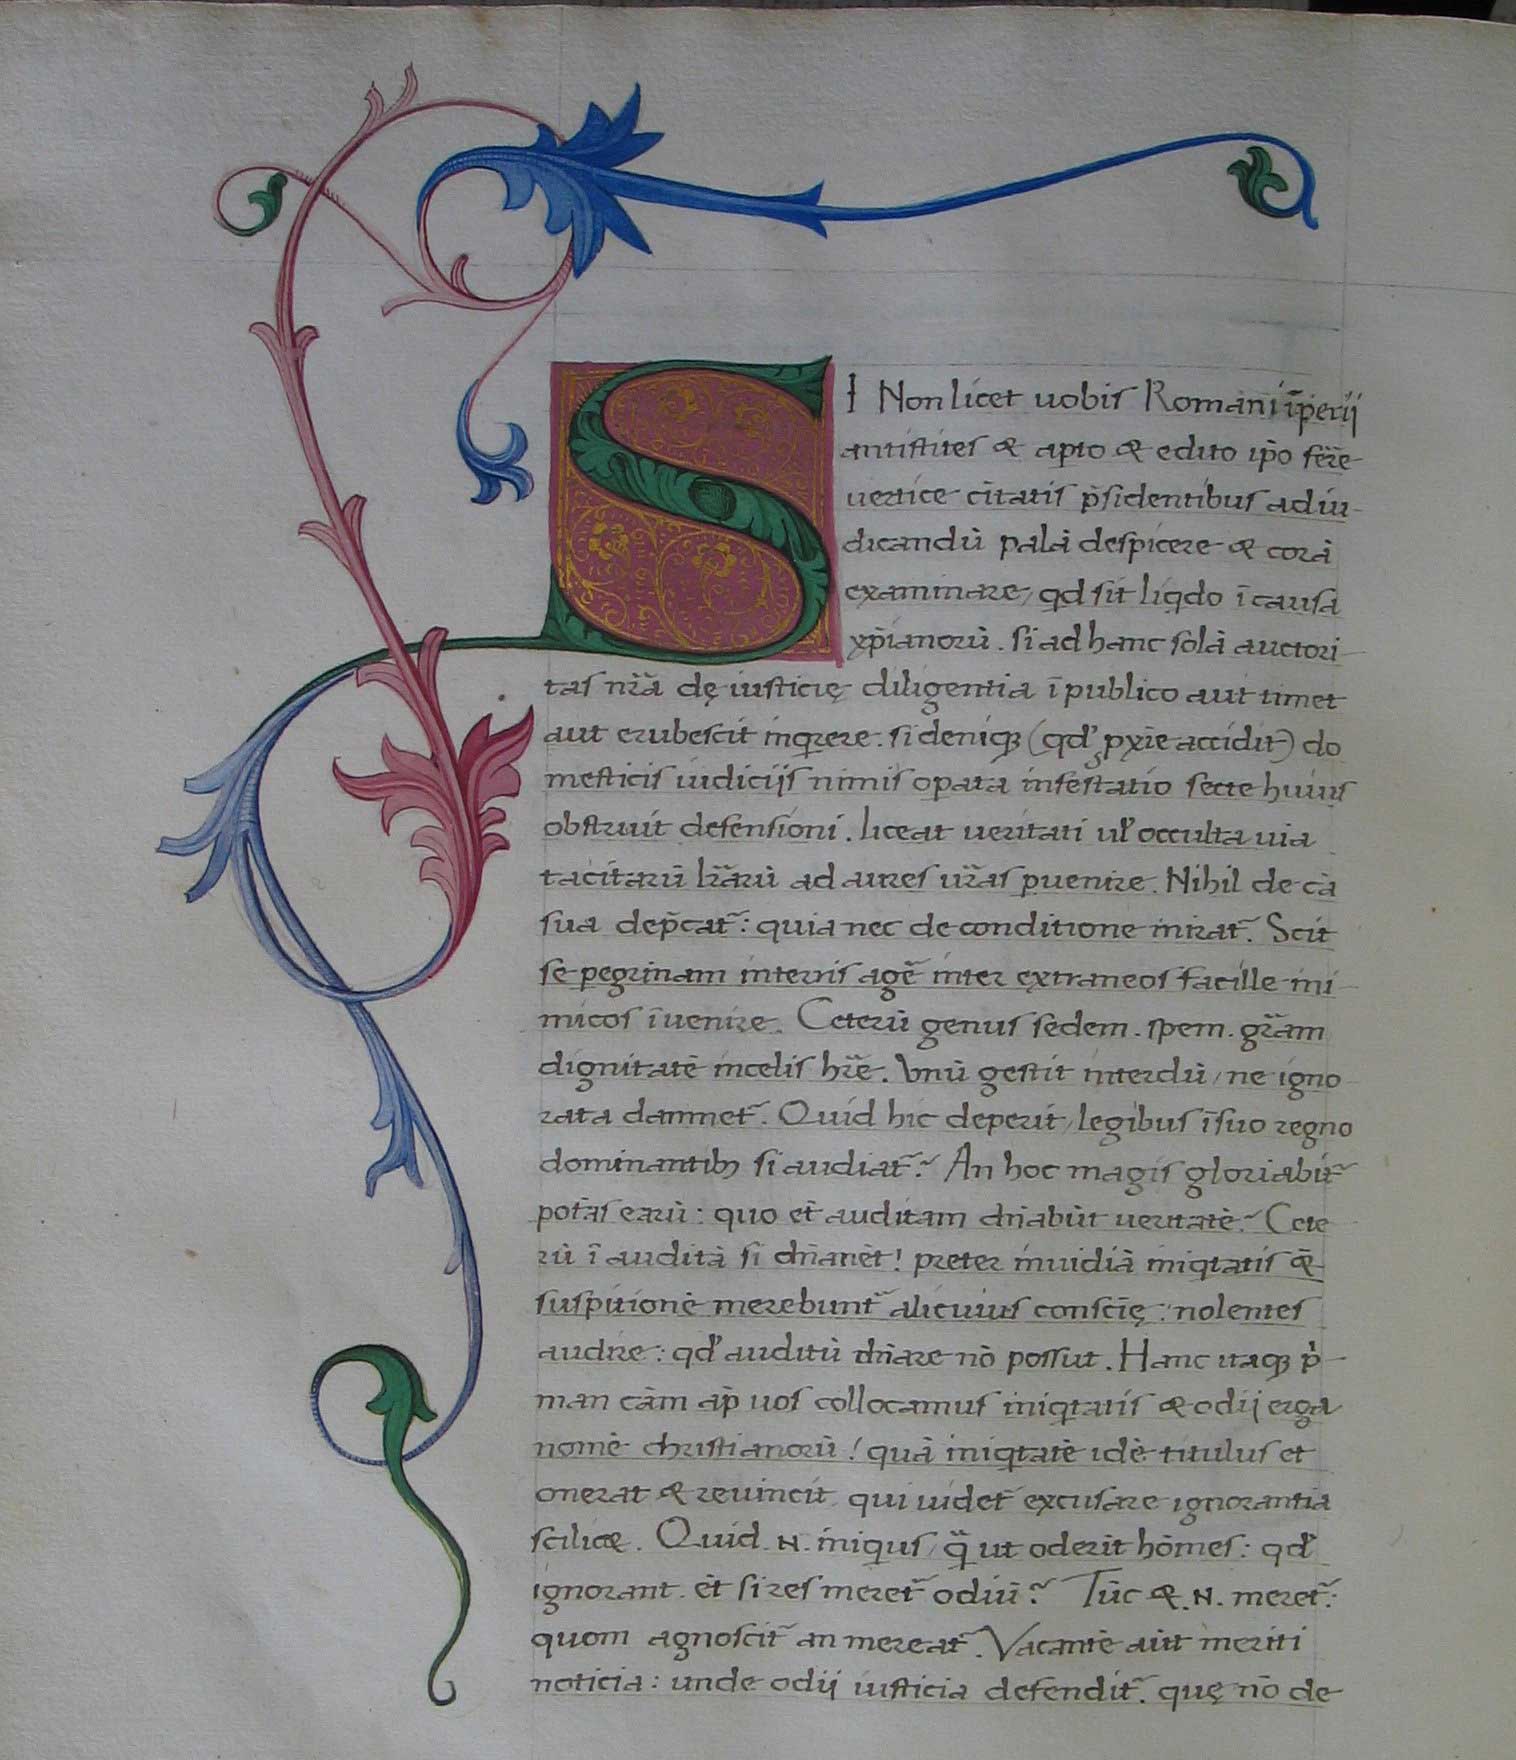 SI Non licet uobis Romani īperii
antistites & apto & edito ip̄o fer̄e
uertice ciūtatis p̄sidentibus ad iu-
dicandū palā despicere & corā
examinare, qd sit liqdo ī causa
xp̄ianorū. si ad hanc solā auctori-
tas nr̄a dę iusticię diligentia ī publico aut timet
aut erubescit inqrere. si deniqꝫ (qd' ꝓxīe accidit) do
mesticis iudiciis nimis opata infestatio secte huius
obstruit defensioni. liceat ueritati ul' occulta uia
tacitarū lr̄arū ad aures ur̄as puenire. Nihil de cā
sua dep̄cat̄: quia nec de conditione mirat̄. Scit
se pegrinam interris agē inter extraneos facille ini-
micos īuenire. Ceterū genus sedem. spem. gr̄am
dignitatē incelis hr̄e. Vnū gestit interdū, ne igno
rata damnet̄. Quid hic deperit, legibus īsuo regno
dominantibꝫ si audiat̄? An hoc magis gloriabit̄
potās earū: quo et auditam dn̄abūt ueritatē? Cete
rū ī auditā si dn̄anēt! preter inuidiā iniqtatis &
suspitionē merebunt̄ alicuius conscię: nolentes
audire: qd' auditū dn̄are nō possut. Hanc itaqꝫ p̄-
man cām ap̄ uos collocamus iniqtatis & odij erga
nomē christianorū! quā iniqtatē idē titulus et
onerat & reuincit qui uidet̄ excusare ignorantia
scilicꝫ. Quid .N. iniqus, q̄ ut oderit hōmes: qd'
ignorant. et si res meret̄ odiū? Tūc &. N. meret̄:
quom agnoscit̄ an mereat̄. Vacantē aūt meriti
noticia: unde odij iusticia defendit̄. quę nō de